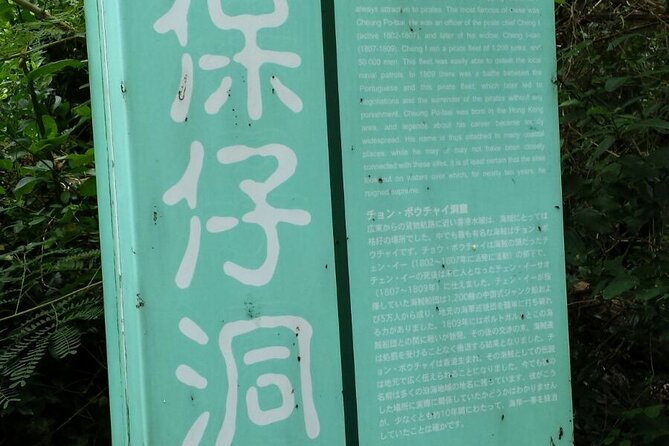 保
仔
洞
always attractive to pirates. The most famous of these was
Cheung Po-tsai. He was an officer of the pirate chief Cheng I
(active 1802-1807), and later of his widow, Cheng I-sao
(1807-1809). Cheng I ran a pirate fleet of 1,200 junks, and
50 000 men. This fleet was easily able to defeat the local
naval patrols. In 1809 there was a battle between the
Portuguese and this pirate fleet, which later led to
negotiations and the surrender of the pirates without any
punishment. Cheung Po-tsai was born in the Hong Kong
area, and legends about his career became locally
widespread. His name is thus attached to many coastal
places, while he may or may not have been closely
connected with these sites. It is at least certain that the sites
look out on waters over which, for nearly ten years, he
reigned supreme.
チョン・ポウチャイ洞窟
広東からの貿易航路に近い香港水域は、海賊にとっては
格好の場所でした。中でも最も有名な海賊はチョン・ポ
ウチャイです。チョン・ポウチャイは海賊の頭だったチ
ェン・イー（1802～1807年に活発に活動）の部下で、
チェン・イーの死後は未亡人となったチェン・イーサオ
（1807～1809年）に仕えました。チェン・イーが指
揮していた海賊船団は1,200艘の中国式ジャンク船およ
び5万人から成り、地元の海軍巡視艇を簡単に打ち破れ
る力がありました。1809年にはポルトガル人とこの海
賊船団との間に戦いが勃発、その後の交渉の末、海賊達
は処罰を受けることなく撤退する結果となりました。チ
ョン・ポウチャイは香港生まれ、その海賊としての伝説
は地元で広く伝えられることになりました。今でも彼の
名前は多くの沿海地域の地名に残っています。彼がこう
した場所に実際に関係していたかどうかはわかりません
が、少なくとも約10年間にわたって、海岸一帯を統治
していたことは確かです。